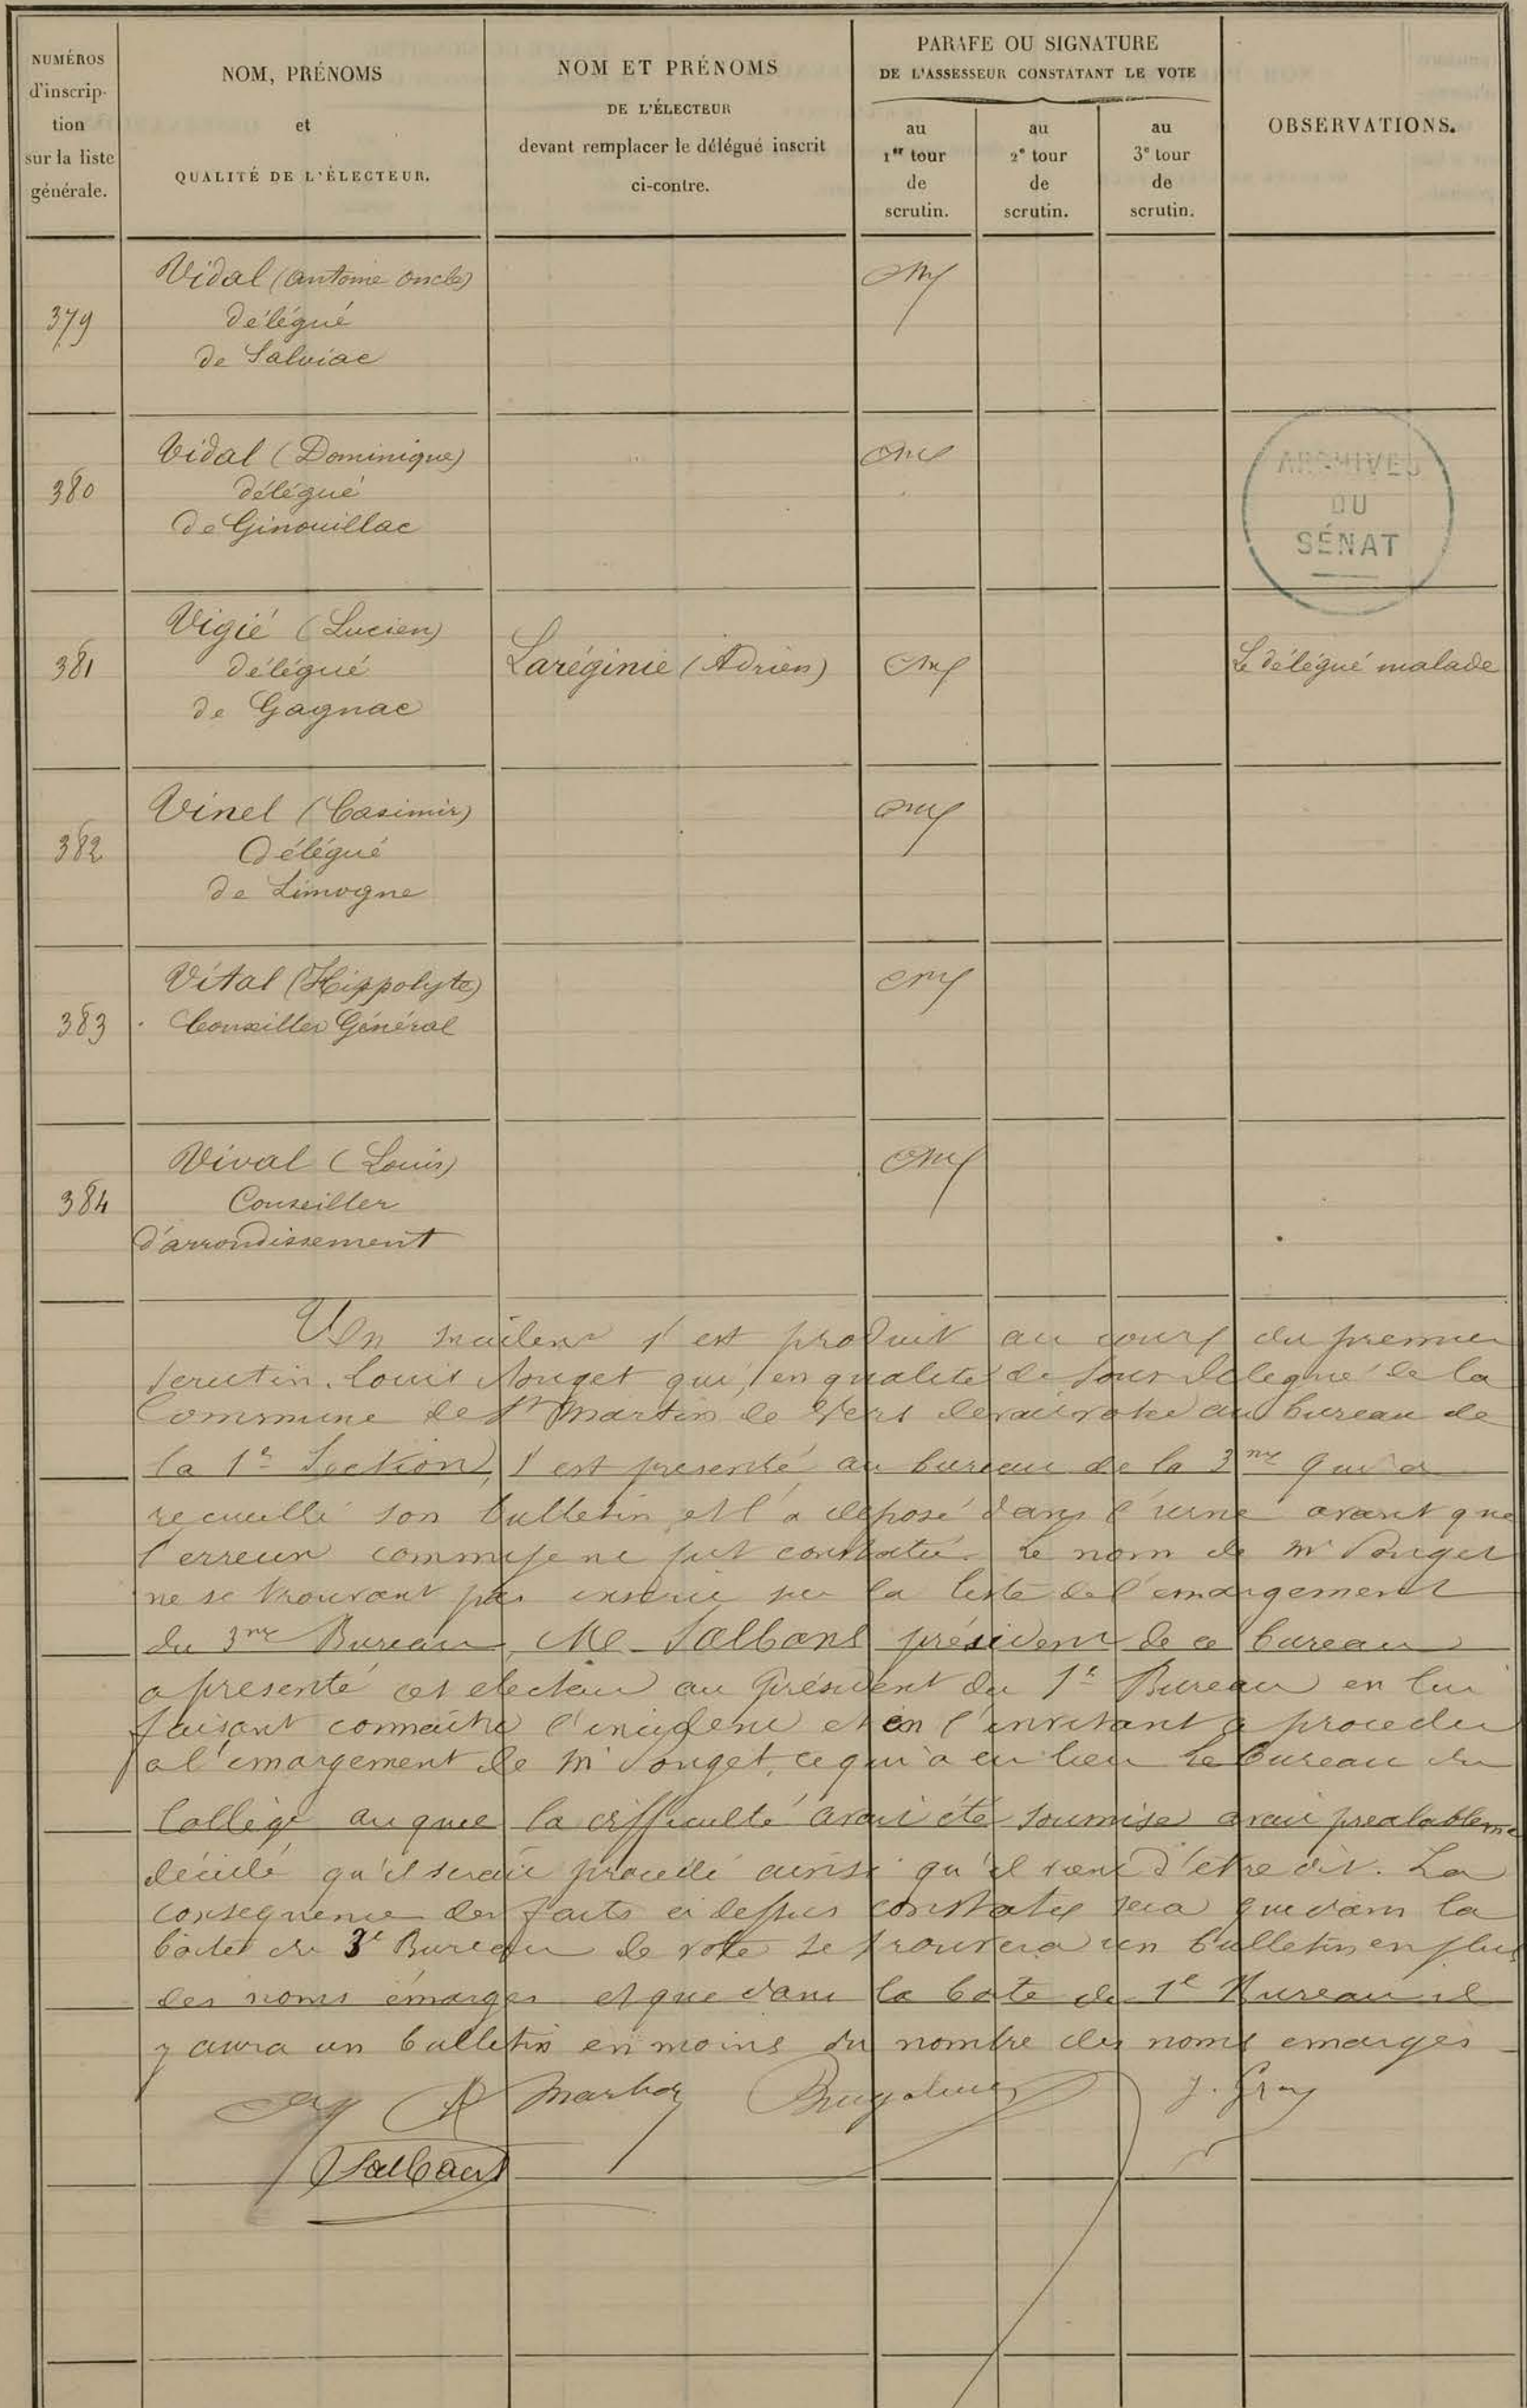 NUMÉROS
d'inscrip-
tion
sur la liste
générale.
NOM, PRÉNOMS
et
QUALITÉ DE L'ÉLECTEUR.
NOM ET PRÉNOMS
DE L'ÉLECTEUR
devant remplacer le délégué inscrit
ci-contre.
PARAFE OU SIGNATURE
DE L'ASSESSEUR CONSTATANT LE VOTE
au
1er tour
de
scrutin.
au
2e tour
de
scrutin.
au
3e tour
de
scrutin.
OBSERVATIONS.
379
Vidal (Antoine oncle)
délégué
de Salviac
380
Vidal (Dominique)
délégué
de Ginouillac
ARCHIVES
DU
SÉNAT
381
Vigié (Lucien)
délégué
de Gagnac
Laréginie (Adrien)
Le délégué malade
382
Vinel (Casimir)
délégué
de Limogne
383
Vital (Hippolyte)
Conseiller Général
384
Vival (Louis)
Conseiller
d'arrondissement
Un incident s'est produit au cours du premier
scrutin. Louis Pouget qui, en qualité de sous délégué de la
Commune de St Martin de Vers devait voter au bureau de
la 1e Section, s'est presenté au bureau de la 3me qui a
recueilli son bulletin et l'a déposé dans l'urne avant que
l'erreur commise ne fut constatée. Le nom de Mr Pouget
ne se trouvant pas inscrit sur la liste de l'emargement
du 3me Bureau, Me Salbans président de ce bureau
a presenté cet electeur au Président du 1e Bureau en lui
faisant connaitre l'incident et en l'invitant à proceder
a l'emargement de Mr Pouget, ce qui a eu lieu Le bureau du
Collège auquel la difficulté avait été soumise avait prealableme
décidé qu'il serait procédé ainsi qu'il vient d'etre dit. La
consequence des faits ci dessus constatés sera que dans la
boite du 3e Bureau de vote se trouvera un bulletin en plus
des noms émargés et que dans la boite du 1e Bureau il
y aura un bulletin en moins du nombre des noms emargés
J. Gray
Salbans